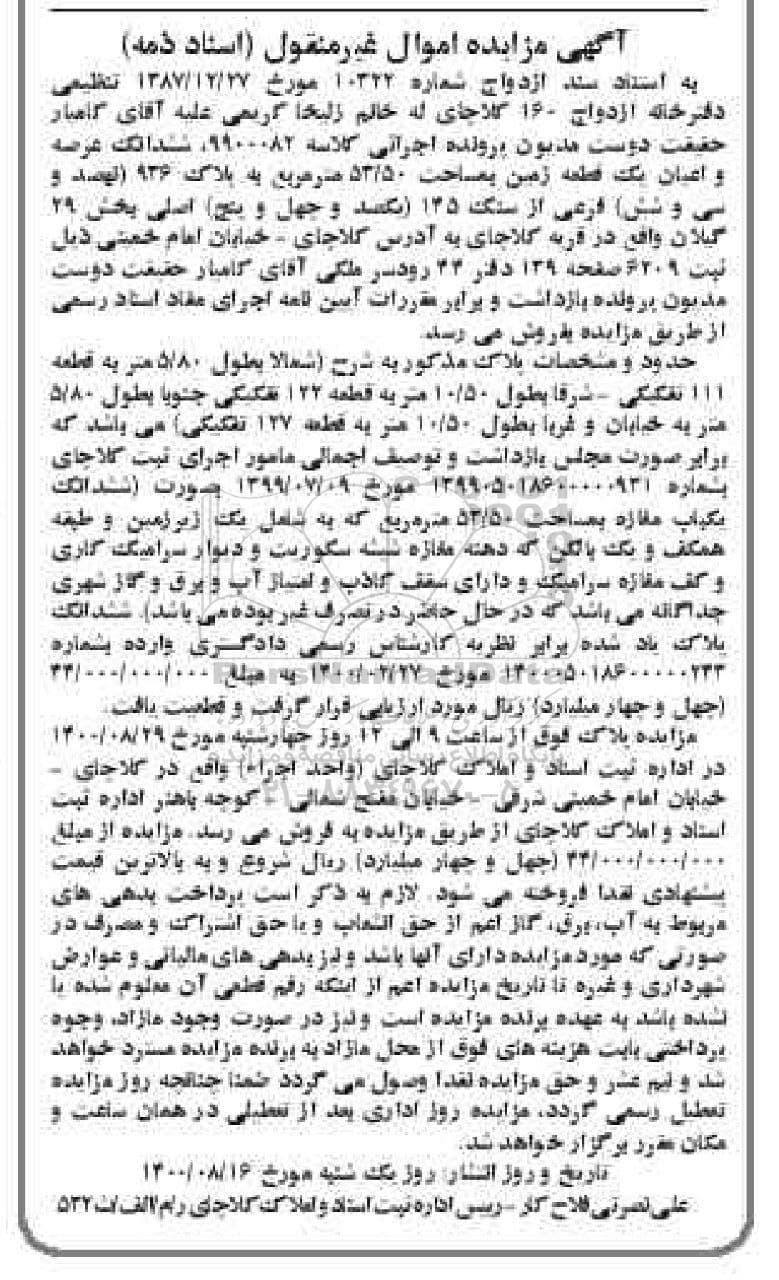 آگهی مزایده اموال غیرمنقول (اسناد ذمه)
به استناد سند ازدواج شماره ۱۰۳۲۲ مورخ ۱۳۸۷/۱۲/۲۷ تنظیمی
دفترخانه ازدواج ۱۶۰ کلاچای له خانم زلیخا کریمی علیه آقای کامبار
حقیقت دوست مدیون پرونده اجرائی کلاسه ۹۹۰۰۰۸۲، ششدانگ عرصه
و اعیان یک قطعه زمین بمساحت ۵۳/۵۰ مترمربع به پلاک ۹۳۶ (نهصد و
سی و شش) فرعی از سنگ ۱۴۵ (یکصد و چهل و پنج) اصلی بخش ۲۹
گیلان واقع در قریه کلاچای به آدرس کلاچای - خیابان امام خمینی ذیل
ثبت ۶۲۰۹ صفحه ۱۳۹ دفتر ۴۴ رودسر ملکی آقای کامبار حقیقت دوست
مدیون پرونده بازداشت و برابر مقررات آیین نامه اجرای مفاد اسناد رسمی
از طریق مزایده بفروش می رسد.
حدود و مشخصات پلاک مذکور به شرح (شمالا بطول ۵/۸۰ متر به قطعه
۱۱۱ تفکیکی - شرقا بطول ۱۰/۵۰ متر به قطعه ۱۲۲ تفکیکی جنوبا بطول ۵/۸۰
متر به خیابان و غربا بطول ۱۰/۵۰ متر به قطعه ۱۲۷ تفکیکی) می باشد که
برابر صورت مجلس بازداشت و توصیف اجمالی مامور اجرای ثبت کلاچای
بشماره ۱۳۹۹۰۵۰۱۸۶۰۰۰۰۰۹۳۱ مورخ ۱۳۹۹/۰۷/۰۹ بصورت (ششدانگ
یکباب مغازه بمساحت ۵۳/۵۰ مترمربع که به شامل یک زیرزمین و طبقه
همکف و یک بالکن که دهنه مغازه شیشه سکوریت و دیوار سرامیک کاری
و کف مغازه سرامیک و دارای سقف کاذب و امتیاز آب و برق و گاز شهری
جداگانه می باشد که در حال حاضر در تصرف غیر بوده می باشد). ششدانگ
پلاک یاد شده برابر نظریه کارشناس رسمی دادگستری وارده بشماره
۱۴۰۰۰۵۰۱۸۶۰۰۰۰۰۲۳۳ مورخ ۱۴۰۰/۰۲/۲۷ به مبلغ ۴۴/۰۰۰/۰۰۰/۰۰۰
(چهل و چهار میلیارد) ریال مورد ارزیابی قرار گرفت و قطعیت یافت.
مزایده پلاک فوق از ساعت ۹ الی ۱۲ روز چهارشنبه مورخ ۱۴۰۰/۰۸/۲۹
در اداره ثبت اسناد و املاک کلاچای (واحد اجراء) واقع در کلاچای -
خیابان امام خمینی شرقی - خیابان مفتح شمالی - کوچه باهنر اداره ثبت
اسناد و املاک کلاچای از طریق مزایده به فروش می رسد. مزایده از مبلغ
۴۴/۰۰۰/۰۰۰/۰۰۰ (چهل و چهار میلیارد) ریال شروع و به بالاترین قیمت
پیشنهادی نقدا فروخته می شود. لازم به ذکر است پرداخت بدهی های
مربوط به آب، برق، گاز اعم از حق انشعاب و یا حق اشتراک و مصرف در
صورتی که مورد مزایده دارای آنها باشد و نیز بدهی های مالیاتی و عوارض
شهرداری و غیره تا تاریخ مزایده اعم از اینکه رقم قطعی آن معلوم شده یا
نشده باشد به عهده برنده مزایده است و نیز در صورت وجود مازاد، وجوه
پرداختی بابت هزینه های فوق از محل مازاد به برنده مزایده مسترد خواهد
شد و نیم عشر و حق مزایده نقدا وصول می گردد ضمنا چنانچه روز مزایده
تعطیل رسمی گردد، مزایده روز اداری بعد از تعطیلی در همان ساعت و
مکان مقرر برگزار خواهد شد.
تاریخ و روز انتشار: روز یک شنبه مورخ ۱۴۰۰/۰۸/۱۶
علی نصرتی فلاح کار - رییس اداره ثبت اسناد و املاک کلاچای ر/م/الف/ث ۵۳۲